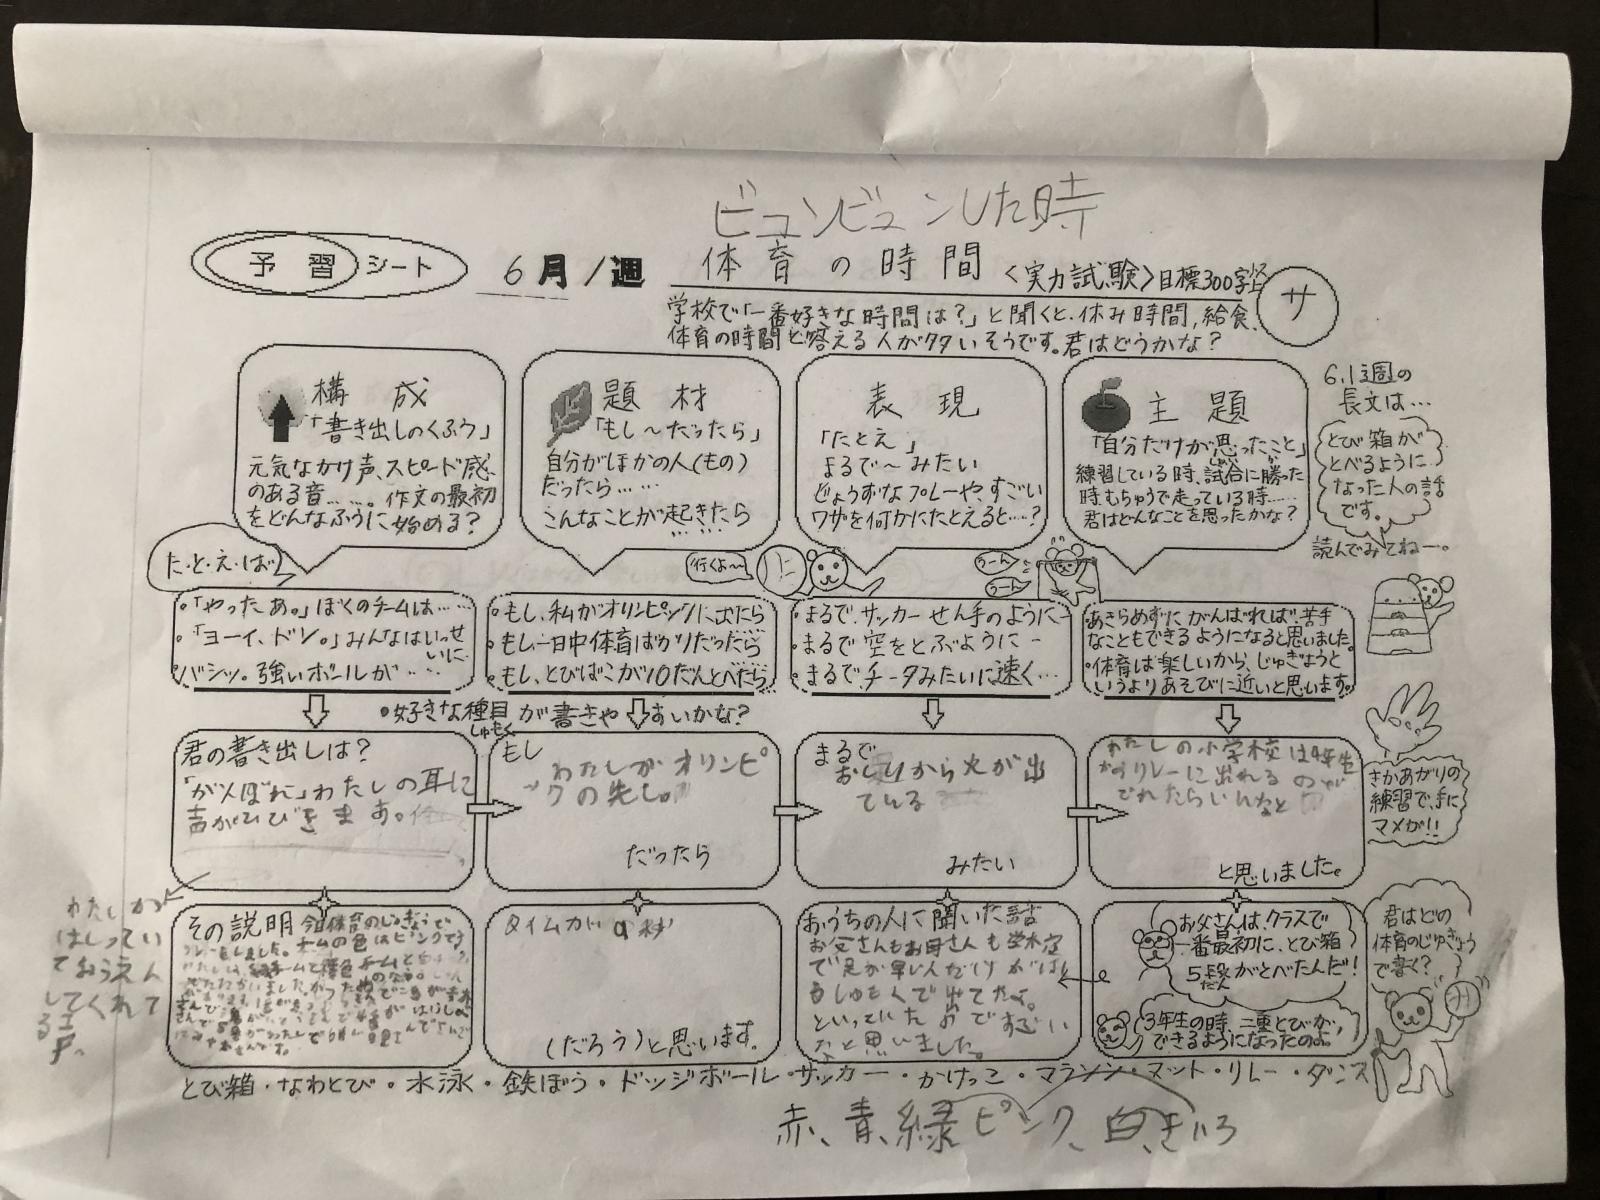 ビュンビュンした時
予習シート
6月/週
体育の時間
<実力試験>目標300字
サ
学校で「一番好きな時間は?」と聞くと、休み時間、給食、
体育の時間と答える人が多いそうです。君はどうかな?
構成
「書き出しのくふう」
元気なかけ声、スピード感
のある音……。作文の最初
をどんなふうに始める?
題材
「もし〜だったら」
自分がほかの人(もの)
だったら……
こんなことが起きたら
……
表現
「たとえ」
まるで〜みたい
じょうずなプレーや、すごい
ワザを何かにたとえると……?
主題
「自分だけが思ったこと」
練習している時、試合に勝った
しあい
時むちゅうで走っている時……
君はどんなことを思ったかな?
6.1週の
長文は…
とび箱が
とべるように
なった人の話
です。
読んでみてねー。
た・と・え・ば
行くよ〜
うーん
うーん
・「やったあ。」ぼくのチームは……
・「ヨーイ、ドン。」みんなはいっせ
いに…
バシッ。強いボールが……
・もし、私がオリンピックに出たら
・もし一日中体育ばかりだったら
・もし、とびばこが10だんとべたら
・まるで、サッカーせん手のように−
・まるで空をとぶように−
・まるで、チータみたいに速く…
あきらめずにがんばれば、苦手
なこともできるようになると思いました。
・体育は楽しいから、じゅぎょうと
いうよりあそびに近いと思います。
・好きな種目が書きやすいかな?
しゅもく
君の書き出しは?
「がんばれ」わたしの耳に
声がひびきます。
もし
わたしがオリンピ
ックの先し。
だったら
まるで
おしりから火が出
ている
みたい
わたしの小学校は4年生
からリレーに出れるので
でれたらいいなと
と思いました。
さかあがりの
練習で、手に
マメが!!
わたしが
はしってい
ておうえん
してくれて
る声。
その説明
タイムが 9秒
(だろう)と思います。
おうちの人に聞いた話
お父さんもお母さんも
で足が早い人だけ
で出てたよ。
といっていたのですごい
なと思いました。
お父さんは、クラスで
一番最初に、とび箱
5段がとべたんだ!
だん
3年生の時、二重とびが、
できるようになったのよ。
君はどの
体育のじゅぎょう
で書く?
とび箱・なわとび・水泳・鉄ぼう・ドッジボール・サッカー・かけっこ・マラソン・マット・リレー・ダンス
赤、青、緑、ピンク、白、きいろ